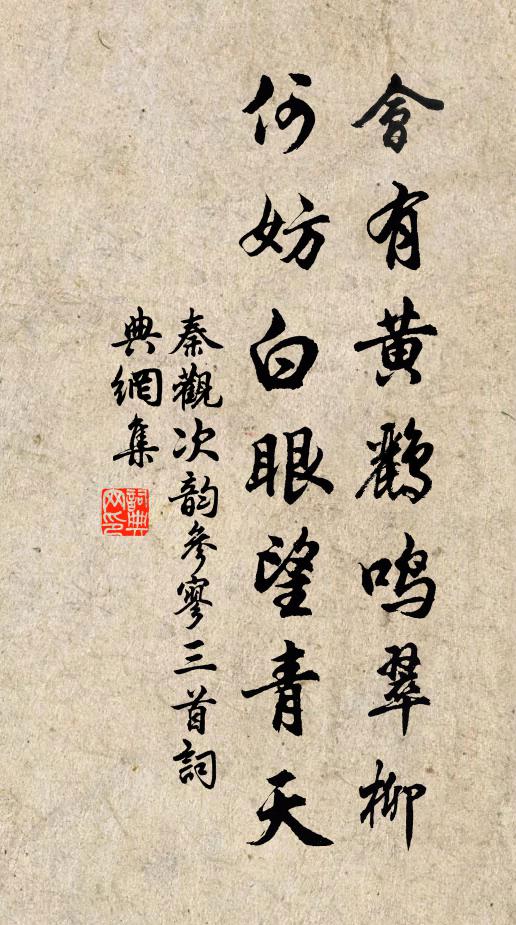 會有黄鸝鳴翠柳
何妨白眼望青天
秦觀次韵參寥三首詞
典網集
詞典網印